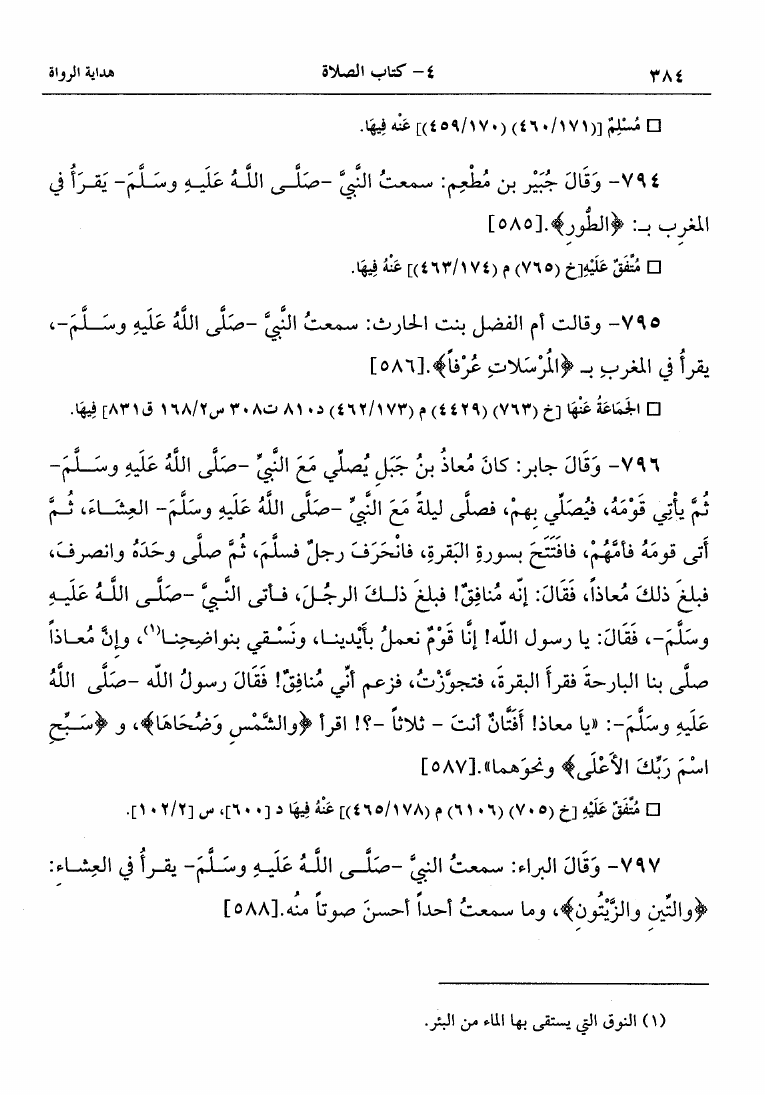 ٣٨٤ ٤- كتاب الصلاة هداية الرواة
□ مُسْلِمٌ [(٤٦٠/١٧١) (٤٥٩/١٧٠)] عَنْه فِيهَا.
٧٩٤- وَقَالَ جُبَيْر بن مُطْعِم: سمعتُ النَّبيَّ -صَلَّى اللَّهُ عَلَيهِ وسَلَّمَ- يَقرَأُ في
المغرِب بـ: ﴿الطُّورِ﴾.[٥٨٥]
□ مُتَّفَقٌ عَلَيْهِ[خ (٧٦٥) م (٤٦٣/١٧٤)] عَنْهُ فِيهَا.
٧٩٥- وقالت أم الفضل بنت الحارث: سمعتُ النَّبيَّ -صَلَّى اللَّهُ عَلَيهِ وسَلَّمَ-،
يقرأُ في المغربِ بـ ﴿الْمُرْسَلاتِ عُرْفاً﴾.[٥٨٦]
□ الجَمَاعَةُ عَنْهَا [خ (٧٦٣) (٤٤٢٩) م (٤٦٢/١٧٣) د٨١٠ ت٣٠٨ س١٦٨/٢ ق٨٣١] فِيهَا.
٧٩٦- وَقَالَ جابر: كانَ مُعاذُ بنُ جَبَلٍ يُصلِّي مَعَ النَّبيِّ -صَلَّى اللَّهُ عَلَيهِ وسَلَّمَ-
ثُمَّ يأتِي قَوْمَهُ، فيُصَلِّي بِهمْ، فصلَّى ليلةً مَعَ النَّبيِّ -صَلَّى اللَّهُ عَلَيهِ وسَلَّمَ- العِشَاءَ، ثُمَّ
أَتى قومَهُ فأمَّهُمْ، فافتَتَحَ بسورةِ البَقرةِ، فانْحَرَفَ رجلٌ فسلَّمَ، ثُمَّ صلَّى وحَدَهُ وانصرفَ،
فبلغَ ذلكَ مُعاذاً، فَقَالَ: إنَّه مُنافِقٌ! فبلغَ ذلكَ الرجُلَ، فأتى النَّبيَّ -صَلَّى اللَّهُ عَلَيهِ
وسَلَّمَ-، فَقَالَ: يا رسول اللّه! إنَّا قَوْمٌ نعملُ بأَيْدينا، ونَسْقي بنواضِحِنا(١)، وإنَّ مُعاذاً
صلَّى بنا البارحةَ فقرأَ البقرةَ، فتجوَّزْتُ، فزعم أنِّي مُنافِقٌ! فَقَالَ رسولُ اللّه -صَلَّى اللَّهُ
عَلَيهِ وسَلَّمَ-: «يا معاذ! أَفَتَّانٌ أنتَ - ثلاثاً -؟! اقرأ ﴿والشَّمْسِ وَضُحَاهَا﴾، و ﴿سَبِّحِ
اسْمَ رَبِّكَ الأَعْلَى﴾ ونحوَهما».[٥٨٧]
□ مُتَّفَقٌ عَلَيْهِ [خ (٧٠٥) (٦١٠٦) م (٤٦٥/١٧٨)] عَنْهُ فِيهَا د [٦٠٠]، س [١٠٢/٢].
٧٩٧- وَقَالَ البراء: سمعتُ النبيَّ -صَلَّى اللَّهُ عَلَيهِ وسَلَّمَ- يقرأُ في العِشاءِ:
﴿والتِّينِ والزَّيْتُونِ﴾، وما سمعتُ أحداً أحسنَ صوتاً منُه.[٥٨٨]
(١) النوق التي يستقى بها الماء من البئر.